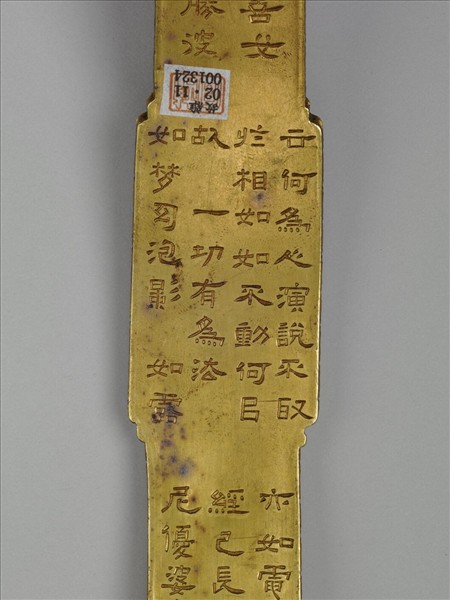 善女
勝彼
云何為人演說不取
於相如如不動何㠯
故 一切有為法
如梦幻泡影 如露
亦如電
經已長
尼優婆
故雜
02・11
001324